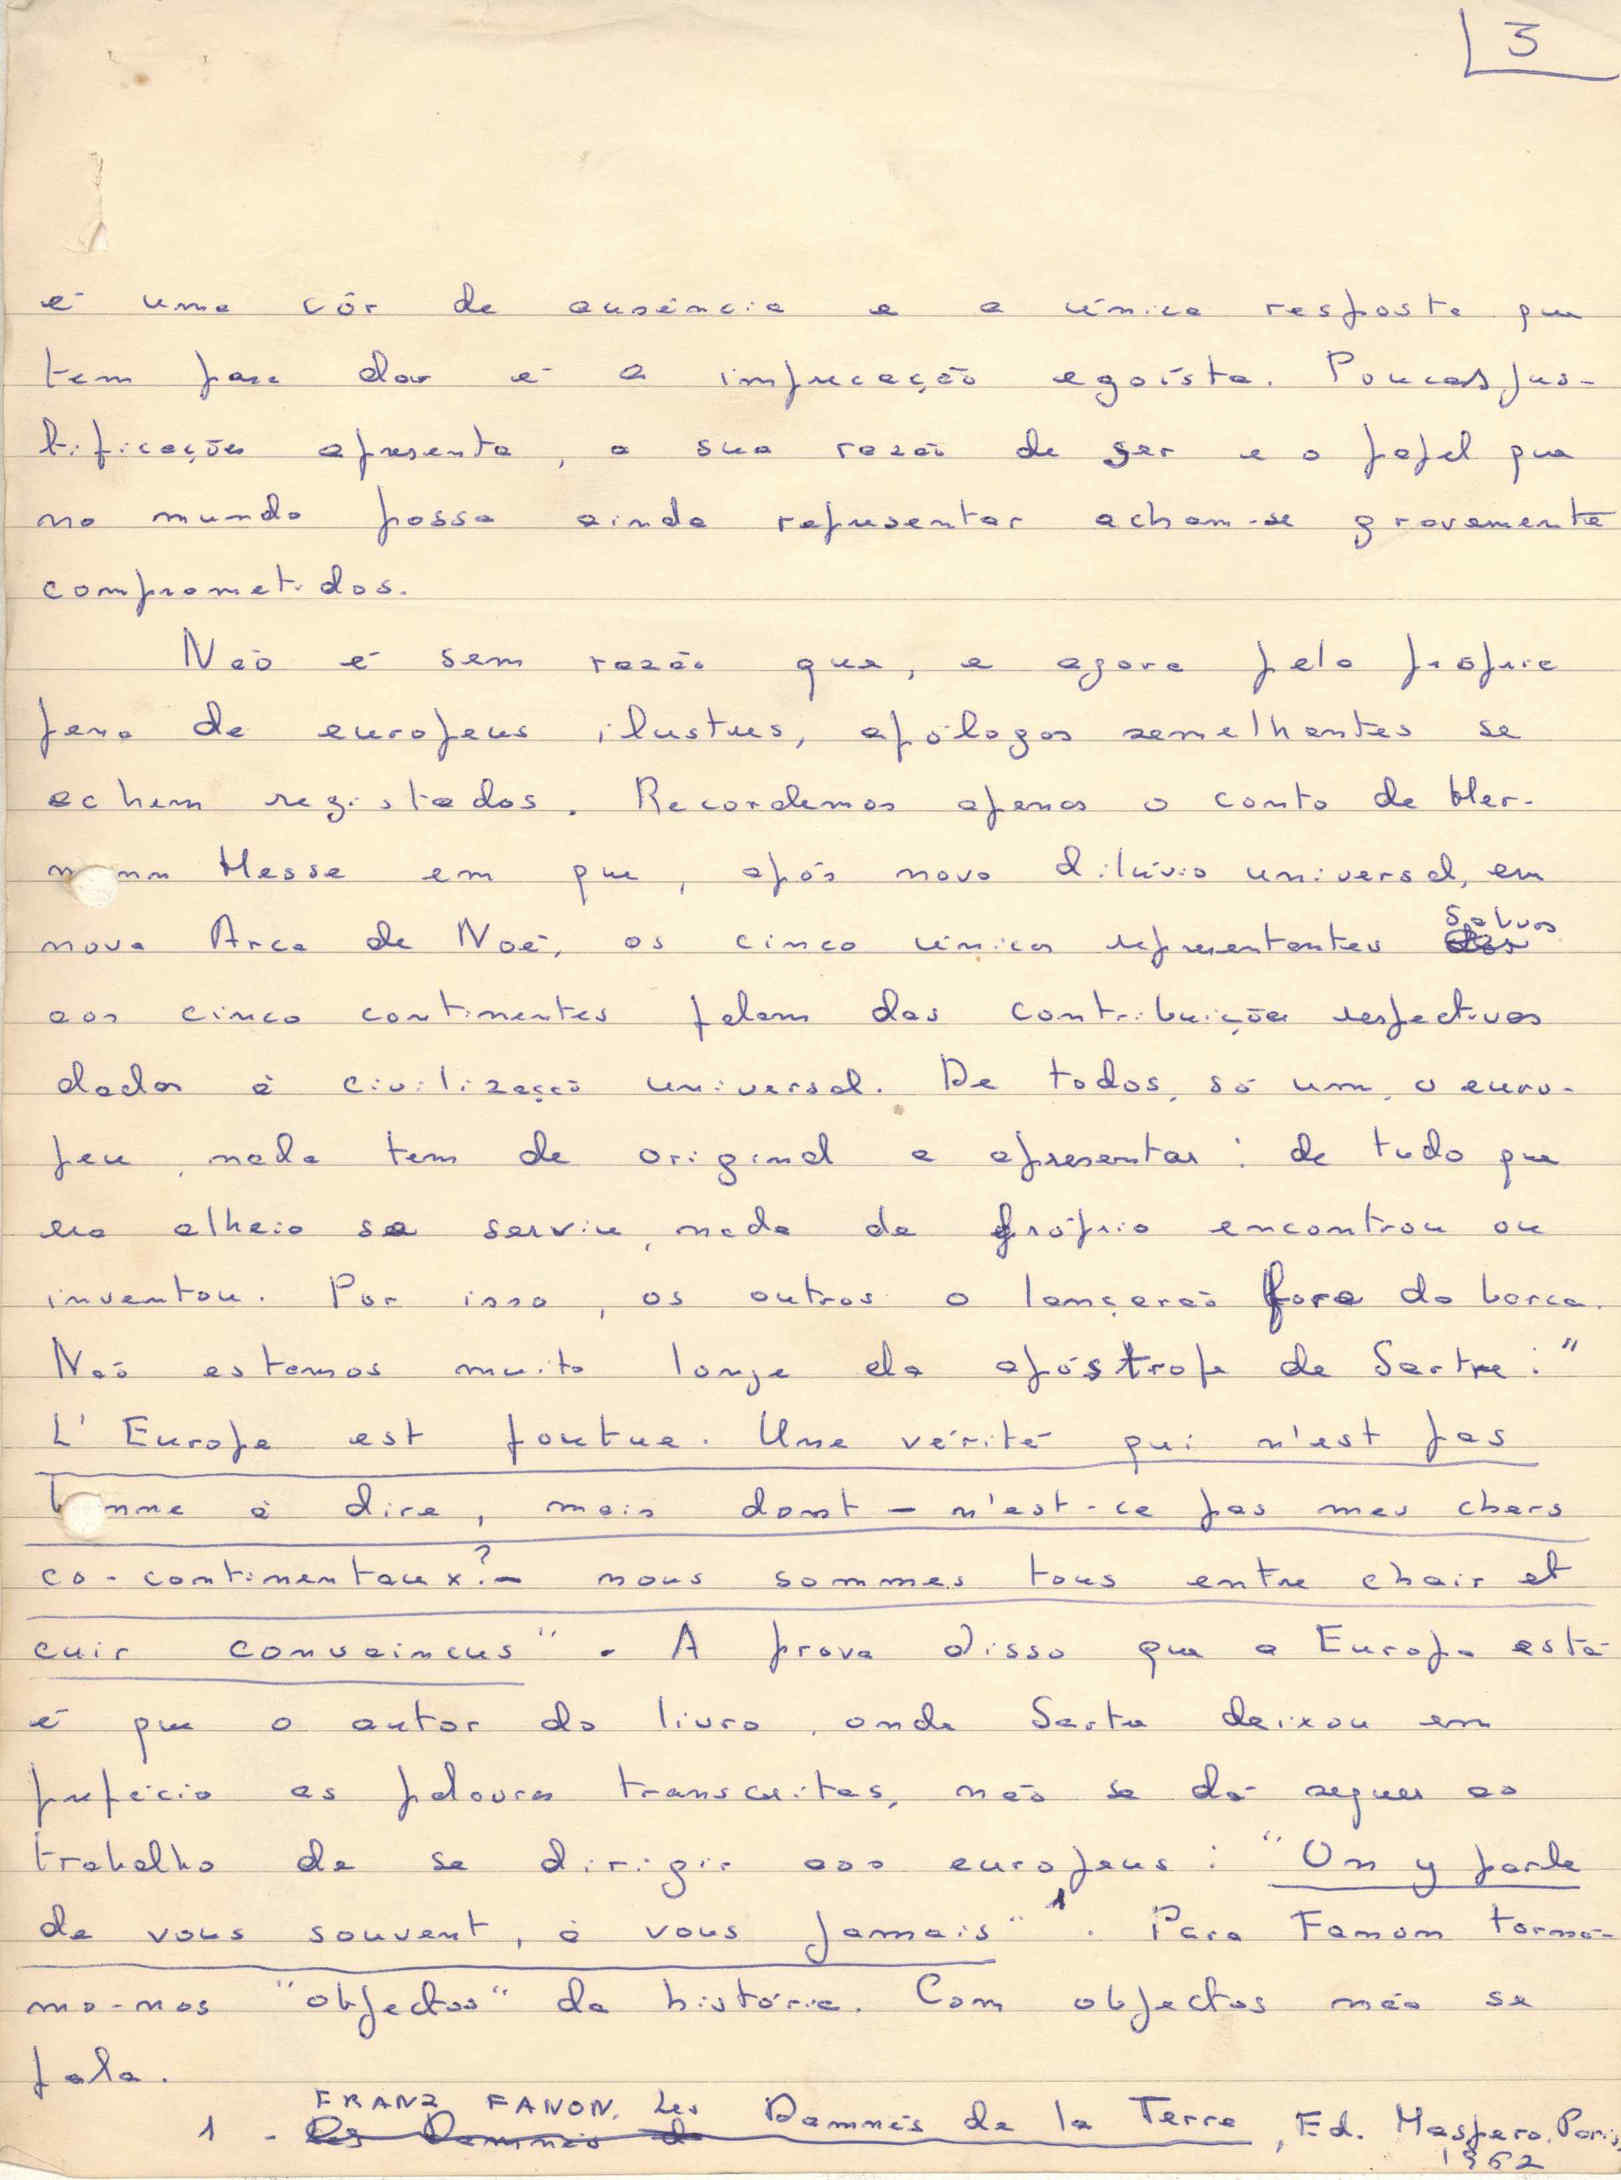 3
é uma côr de ausência e a única resposta que
tem para dar é a imprecação egoísta. Poucas jus-
tificações apresenta, a sua razão de ser e o papel que
no mundo possa ainda representar acham-se gravemente
comprometidos.
Não é sem razão que, e agora pela própria
pena de europeus ilustres, apólogos semelhantes se
achem registados. Recordemos apenas o conto de Her-
mann Hesse em que, após novo dilúvio universal, em
nova Arca de Noé, os cinco únicos representantes salvos
aos cinco continentes falam das contribuições respectivas
dadas à civilização universal. De todos, só um, o euro-
peu, nada tem de original a apresentar: de tudo que
era alheio se serviu, nada de próprio encontrou ou
inventou. Por isso, os outros o lançarão fora da barca.
Não estamos muito longe da apóstrofe de Sartre: "
L'Europe est foutue. Une vérité qui n'est pas
bonne à dire, mais dont — n'est-ce pas mes chers
co-continentaux? — nous sommes tous entre chair et
cuir convaincus". A prova disso que a Europa está
é que o autor do livro, onde Sartre deixou em
prefácio as palavras transcritas, não se dá sequer ao
trabalho de se dirigir aos europeus: "On y parle
de vous souvent, à vous jamais"1. Para Fanon torná-
mo-nos "objectos" da história. Com objectos não se
fala.
1 - FRANZ FANON, Les Damnés de la Terre, Ed. Maspero, Paris,
1962